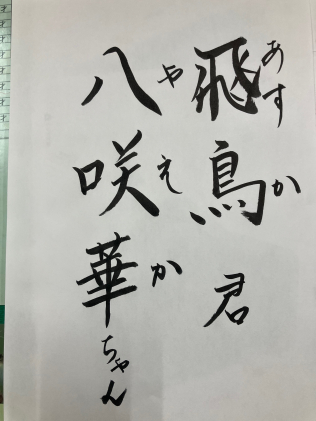 飛鳥君
あすか
八咲華ちゃん
やえか